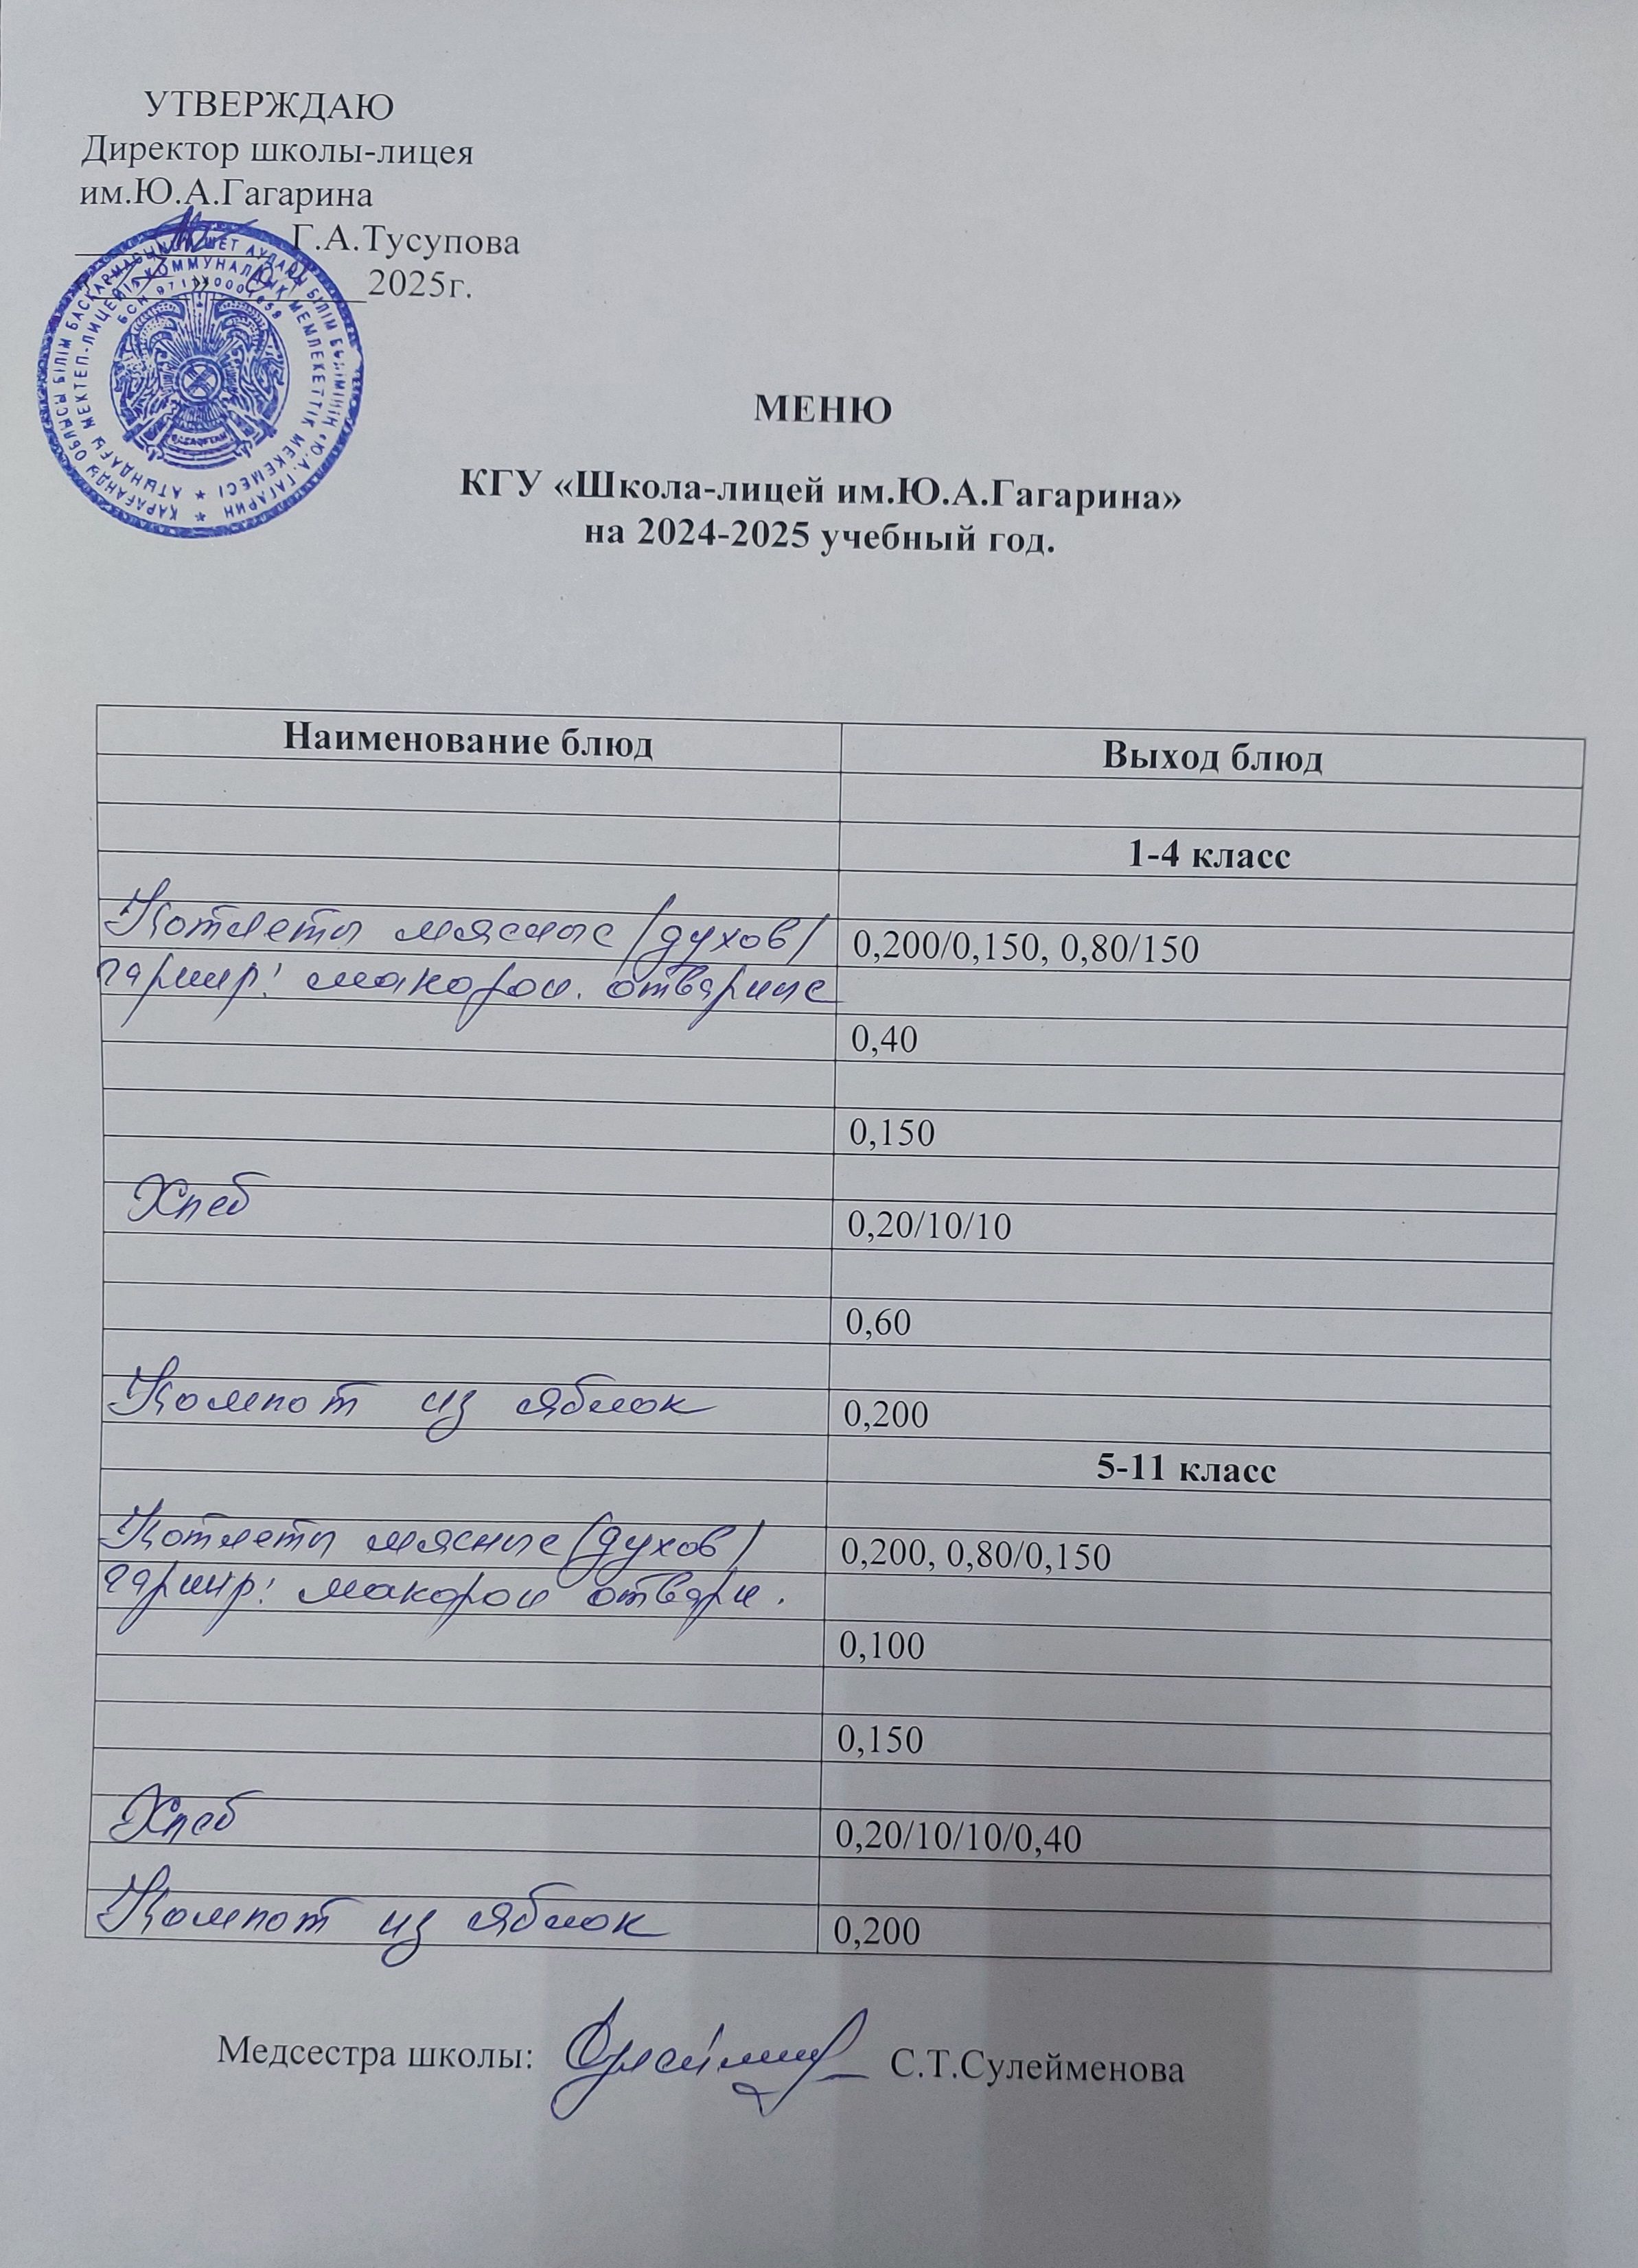 УТВЕРЖДАЮ
Директор школы-лицея
им.Ю.А.Гагарина
Г.А.Тусупова
2025г.
ҚАРАҒАНДЫ ОБЛЫСЫ БІЛІМ БАСҚАРМАСЫНЫҢ ШЕТ АУДАНЫ БІЛІМ БӨЛІМІНІҢ «Ю.А.ГАГАРИН
АТЫНДАҒЫ МЕКТЕП-ЛИЦЕЙІ» КОММУНАЛДЫҚ МЕМЛЕКЕТТІК МЕКЕМЕСІ
БСН
МЕНЮ
КГУ «Школа-лицей им.Ю.А.Гагарина»
на 2024-2025 учебный год.
Наименование блюд Выход блюд
1-4 класс
Котлеты мясные /духов/ 0,200/0,150, 0,80/150
гарнир: макорон. отварные
0,40
0,150
Хлеб 0,20/10/10
0,60
Компот из яблок 0,200
5-11 класс
Котлеты мясные /духов/ 0,200, 0,80/0,150
гарнир: макорон отварн.
0,100
0,150
Хлеб 0,20/10/10/0,40
Компот из яблок 0,200
Медсестра школы: С.Т.Сулейменова